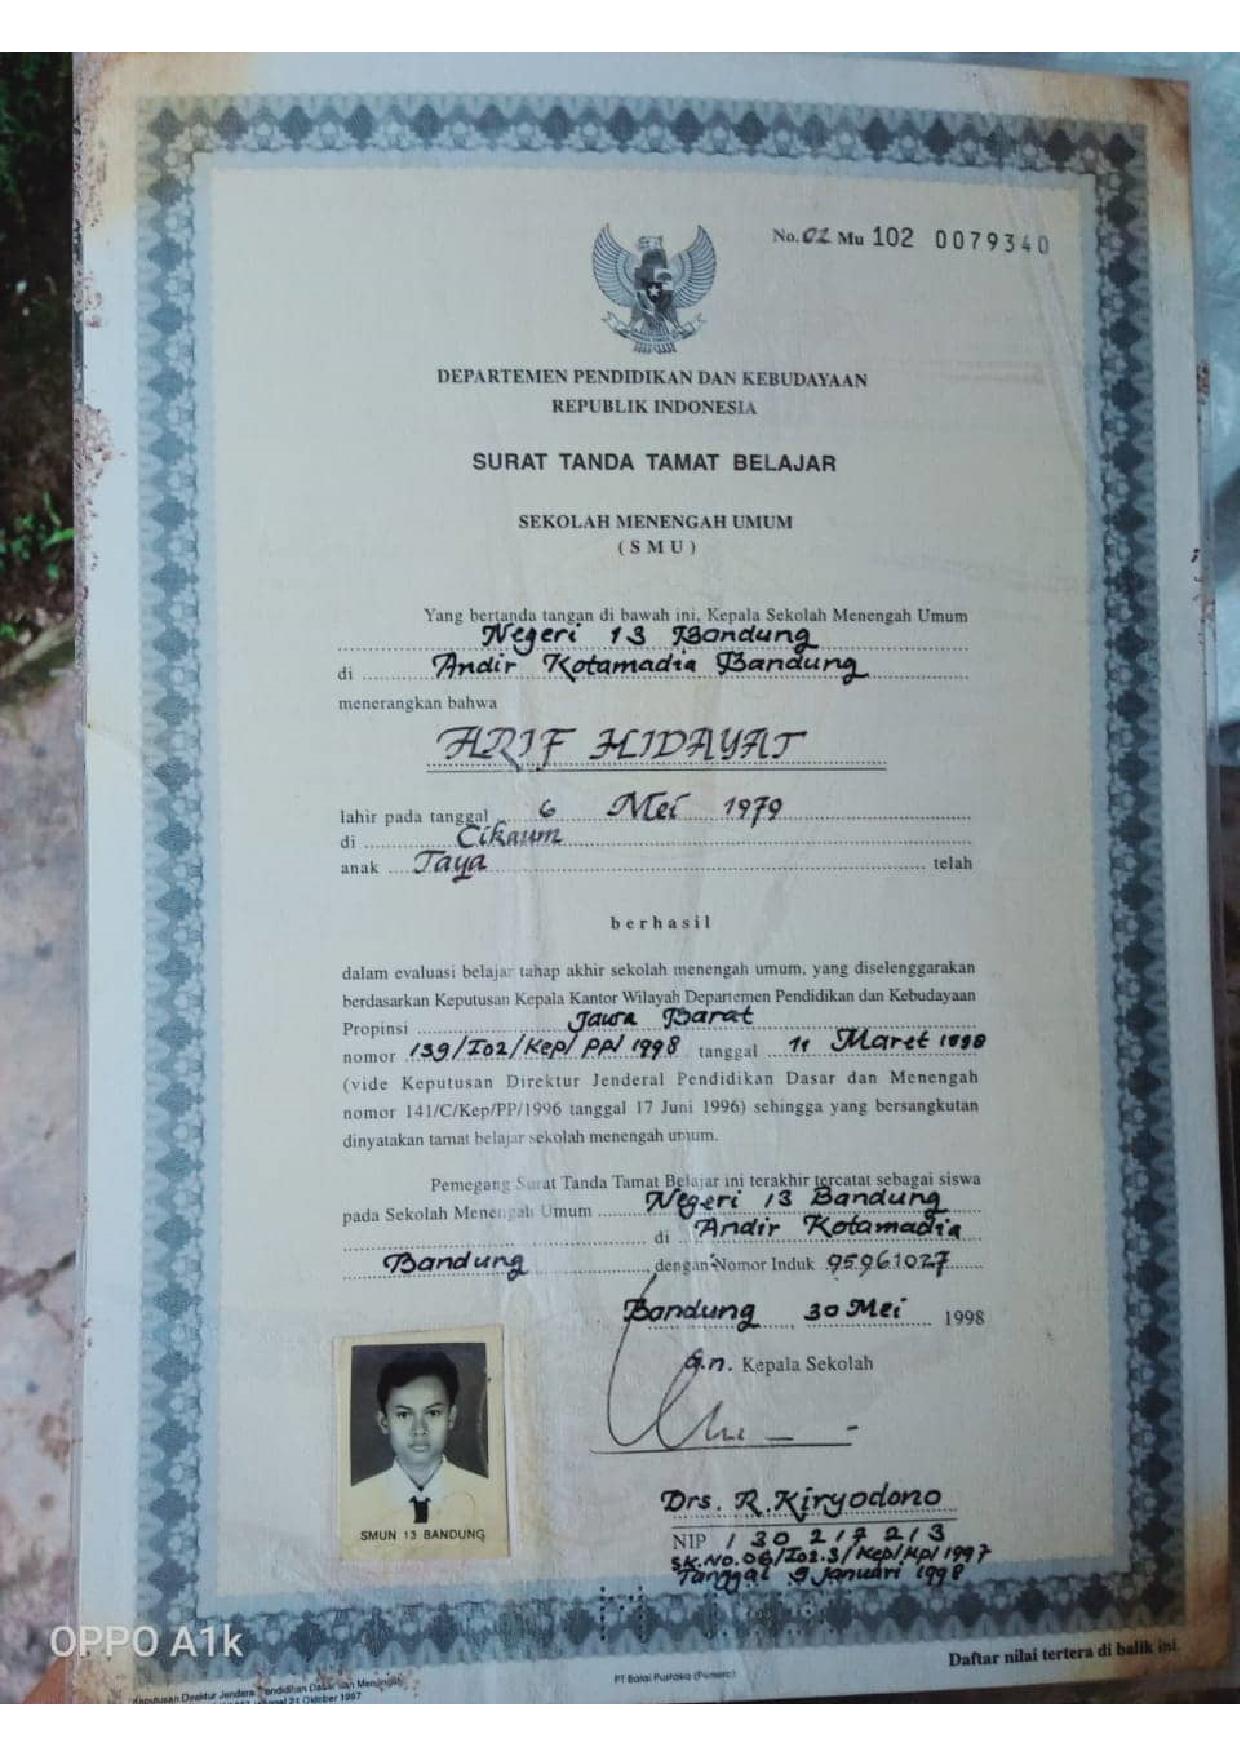 No. 02 Mu 102 0079340
DEPARTEMEN PENDIDIKAN DAN KEBUDAYAAN
REPUBLIK INDONESIA
SURAT TANDA TAMAT BELAJAR
SEKOLAH MENENGAH UMUM
( S M U )
Yang bertanda tangan di bawah ini, Kepala Sekolah Menengah Umum
Negeri 13 Bandung
di Andir Kotamadia Bandung
menerangkan bahwa
ARIF HIDAYAT
lahir pada tanggal 6 Mei 1979
di Cikaum
anak Taya telah
berhasil
dalam evaluasi belajar tahap akhir sekolah menengah umum, yang diselenggarakan
berdasarkan Keputusan Kepala Kantor Wilayah Departemen Pendidikan dan Kebudayaan
Propinsi Jawa Barat
nomor 139/I02/Kep/PP/1998 tanggal 11 Maret 1998
(vide Keputusan Direktur Jenderal Pendidikan Dasar dan Menengah
nomor 141/C/Kep/PP/1996 tanggal 17 Juni 1996) sehingga yang bersangkutan
dinyatakan tamat belajar sekolah menengah umum.
Pemegang Surat Tanda Tamat Belajar ini terakhir tercatat sebagai siswa
pada Sekolah Menengah Umum Negeri 13 Bandung
di Andir Kotamadia
Bandung dengan Nomor Induk 95961027
Bandung 30 Mei 1998
a.n. Kepala Sekolah
Drs. R. Kiryodono
NIP 130217213
SK.No.06/I02.3/Kep/KP/1997
Tanggal 9 Januari 1998
SMUN 13 BANDUNG
OPPO A1k
Daftar nilai tertera di balik ini.
PT Balai Pustaka (Persero)
Keputusan Direktur Jenderal Pendidikan Dasar dan Menengah
tanggal 21 Oktober 1997